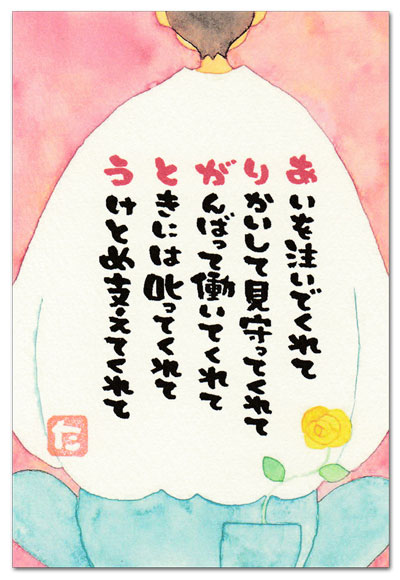 あいを注いでくれて
りかいして見守ってくれて
がんばって働いてくれて
ときには叱ってくれて
うけとめ支えてくれて
た